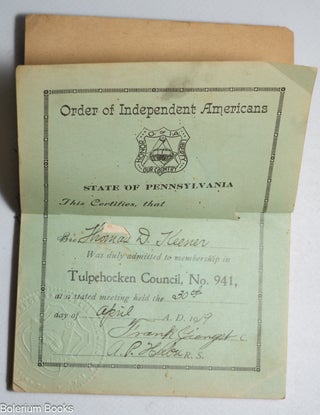 Order of Independent Americans
O of I A
HONOR
LIBERTY
OUR COUNTRY
STATE OF PENNSYLVANIA
This Certifies, that
Bro. Thomas D. Keener
Was duly admitted to membership in
Tulpehocken Council, No. 941,
at a stated meeting held the 30th
day of April A. D. 1919
Frank C.
A. P. R. S.
Bolerium Books